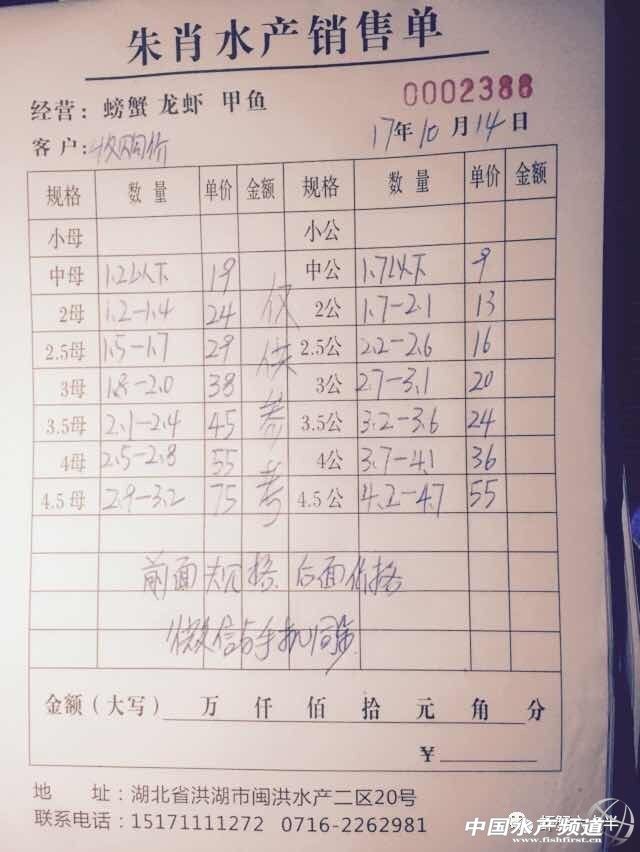 朱肖水产销售单
经营：螃蟹 龙虾 甲鱼 0002388
客户：收购价 17年10月14日
规格 数量 单价 金额 规格 数量 单价 金额
小母 小公
中母 1.2以下 19 中公 1.7以下 9
2母 1.2-1.4 24 仅 2公 1.7-2.1 13
2.5母 1.5-1.7 29 供 2.5公 2.2-2.6 16
3母 1.8-2.0 38 3公 2.7-3.1 20
3.5母 2.1-2.4 45 参 3.5公 3.2-3.6 24
4母 2.5-2.8 55 4公 3.7-4.1 36
4.5母 2.9-3.2 75 考 4.5公 4.2-4.7 55
前面规格、后面价格
微信与手机同步
金额（大写） 万 仟 佰 拾 元 角 分
￥
地 址：湖北省洪湖市闽洪水产二区20号
联系电话：15171111272 0716-2262981
中国水产频道
www.fishfirst.cn